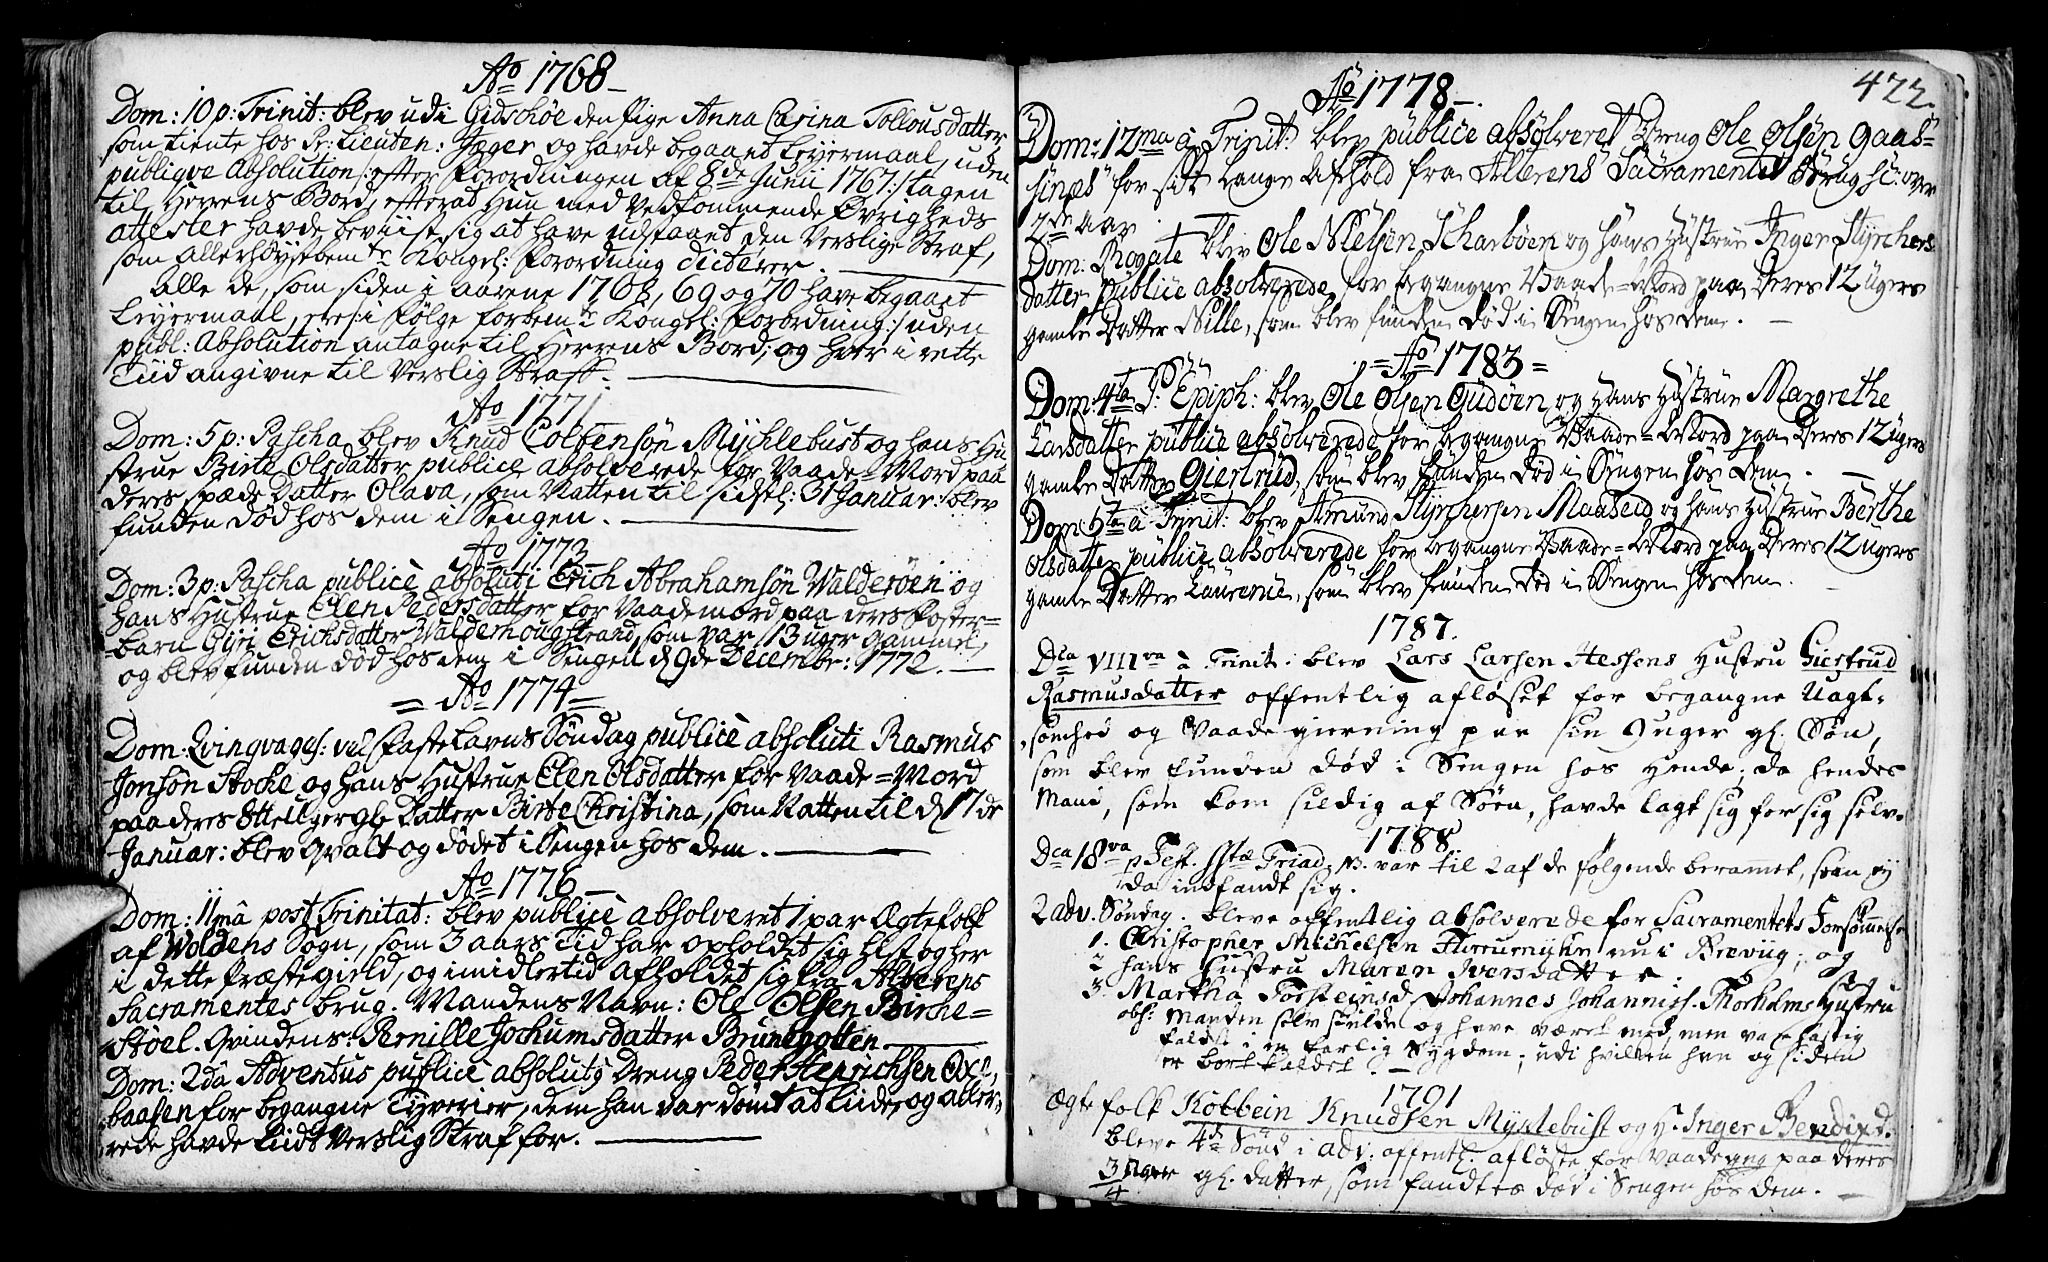 Ao 1768
Dom: 10 p: Trinit: blev udi Gidschöe den Pige Anna Carina Tollousdatter
som tiente hos Pr: Lieuten: Jæger og havde begaaet Leyermaal, uden
publiqve Absolution /: efter Forordningen af 8de Junii 1767:/ tagen
til Herrens Bord, efterad hun med Vedkommende Øvrigheds
attester havde beviist sig at have udstaaet den Verslige Straf,
som allerhöystbemte Kongel: Forordning dicterer.
Alle de, som siden i aarene 1768, 69 og 70 have begaaet
Leyermaal, ere /: i Følge forbemte Kongel: Forordning:/ uden
publ: Absolution antagne til Herrens Bord, og hver i rette
Tiid angivne til Verslig Straff.
Ao 1771
Dom: 5 p: Pascha blev Knud Colbensön Mychlebust og hans Hu
strue Birte Olsdatter publice absolverede for Vaade=Mord paa
deres spæde Datter Olava, som Natten til sidstl: 31 Januar: blev
funden død hos dem i Sengen.
Ao 1773
Dom: 3 p: Pascha publicè absoluti Erich Abrahamsön Walderöen og
hans Hustrue Elen Pedersdatter for Vaademord paa deres Foster=
barn Gyri Erichsdatter Walderhougstrand, som var 13 uger gammel,
og blev funden død hos dem i Sengen d 9de Decembr: 1772.
= Ao 1774 =
Dom: Qvinqvages: vel Fastelavns Söndag publicè absoluti Rasmus
Jonsön Stocke og hans Hustrue Elen Olsdatter for Vaade=Mord
paa deres Otte Uger gl: Datter Birte Christina, som Natten til d 17de
Januar: blev qvalt og dödet i Sengen hos dem.
Ao 1776
Dom: 11mâ post Trinitat: blev publicè absolveret 1 par Ægtefolk
af Woldens Sogn, som 3 aars Tid har opholdet sig hist og her
i dette Præstegield, og imidlertid afholdet sig fra Alterens
Sacramentes brug. Mandens Navn: Ole Olsen Birche=
Stöel. Qvindens: Pernille Jochumsdatter Brunebotten.
Dom: 2dâ Adventus publicè absolutg Dreng Peder Henrichsen Oxe,
baasen for begangne Tyverier, dem han var dömt at liide, og aller,
rede havde liidt Verslig Straf for.
422.
Ao 1778
Dom: 12ma à Trinit: blev publice absolveret Dreng Ole Olsen Gaas=
sines for sit lange Afhold fra Alterens Sacramentes Brug sc: over
2de aar
Dom: Rogate blev Ole Nielsen Scharböen og hans Hustrue Inger Styrchers
datter publice absolverede for begangne Vaade=Mord paa Deres 12 Ugers
gamle Datter Nille, som blev funden Død i Sengen hos dem.
= Ao 1783 =
Dom: 4ta P: Epiph: blev Ole Olsen Gudöen og Hans Hustrue Margrethe
Larsdatter publice absolverede for begangne Vaade=Mord paa Deres 12 Ugers
gamle Datter Giertrud, som blev funden død i Sengen hos dem.
Dom: 5ta à Trinit: blev Amund Styrchersen Maaseid og hans Hustrue Berthe
Olsdatter publice absolverede for begangne Vaade=Mord paa Deres 12 Ugers
gamle Datter Laurense, som blev funden død i Sengen hos dem.
1787.
Dca VIIIva à Trinit: blev Lars Larsen Hessens Hustru Giertrud
Rasmusdatter offentlig afløset for begangne Uagt-
somhed og Vaade gierning paa sin 9 uger gl. Søn,
som blev funden død i Sengen hos hende, da hendes
Mand, som kom sildig af Søen, havde lagt sig for sig selv.
1788
Dca 18va p Fest. SStæ Triad. NB. var til 2 af de følgende berammet, som ey
da indfandt sig.
2 adv. Søndag. bleve offentlig absolverede for Sacramentets Forsømmelse
1. Christopher Michelsen nu i Brevüg; og
2 hans Hustru Maren Iversdatter.
3. Martha Torsteinsd. Johannes Johanniss. Thorholms Hustru
obs: Manden selv skulde og have været med, men var hastig
faldet i en farlig Sygdom; udi hvilken han og siden
er bortkaldet.
1791
Ægtefolk Kolbein Knudsen Myklebust og H: Inger Bendixd.
bleve 4de Sønd i adv. offentl. afløste for Vaadegng paa deres
3/4 Uger gl. datter, som fandtes død i Sengen hos dem.